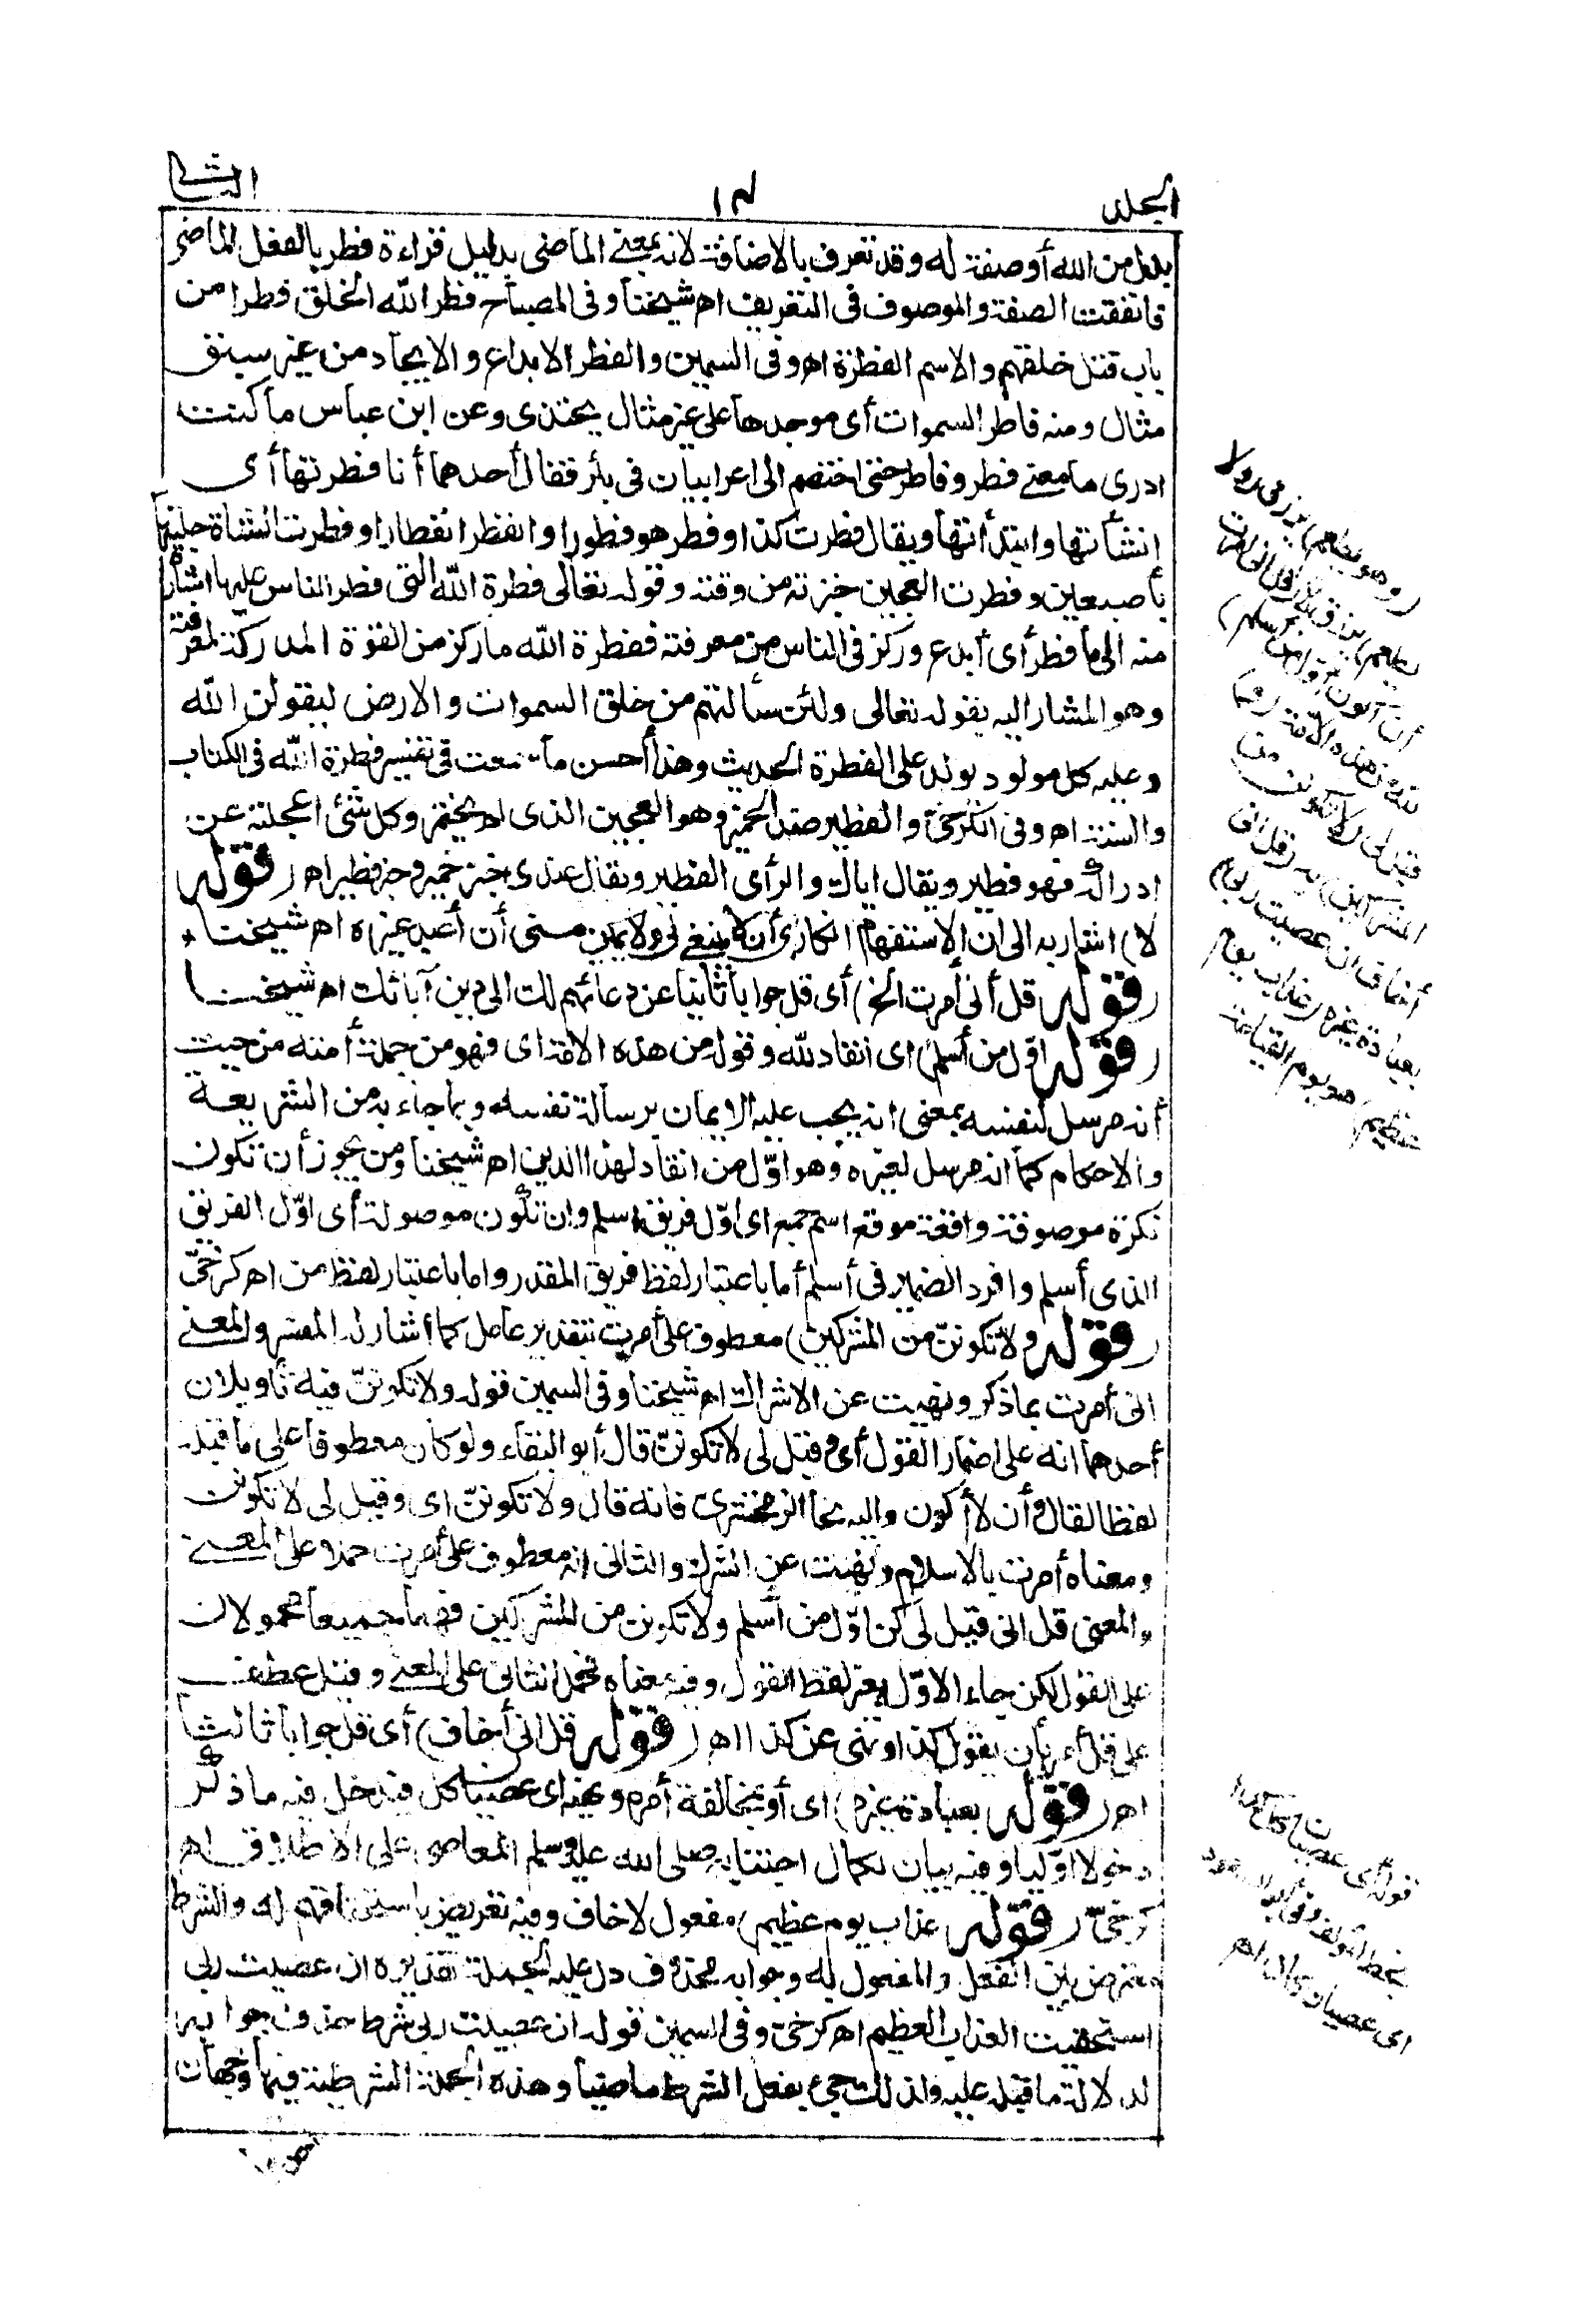 الجلد
١٢
الثانى
بدل من الله أو صفة له وقد تعرف بالاضافة لانه بمعنى الماضى بدليل قراءة فطر بالفعل الماضى
فاتفقت الصفة والموصوف فى التعريف اهـ شيخنا وفى المصباح فطر الله الخلق فطرا من
باب قتل خلقهم والاسم الفطرة اهـ وفى السمين والفطر الابداع والايجاد من غير سبق
مثال ومنه فاطر السموات أى موجدها على غير مثال يحتذى وعن ابن عباس ما كنت
ادرى ما معنى فطر وفاطر حتى اختصم الى اعرابيان فى بئر فقال أحدهما أنا فطرتها أى
انشأتها وابتدأتها ويقال فطرت كذا وفطر هو فطورا وانفطر انفطارا وفطرت الشاة حلبتها
بأصبعين وفطرت العجين خبزته من وقته وقوله تعالى فطرة الله التى فطر الناس عليها اشارة
منه الى ما فطر أى أبدع وركز فى الناس من معرفته ففطرة الله ما ركز من القوة المدركة لمعرفته
وهو المشار اليه بقوله تعالى ولئن سألتهم من خلق السموات والارض ليقولن الله
وعليه كل مولود يولد على الفطرة الحديث وهذا أحسن ما سمعت فى تفسير فطرة الله فى الكتاب
والسنة اهـ وفى الكرخىّ والفطير ضد الخمير وهو العجين الذى لم يختمر وكل شئ اعجلته عن
ادراكه فهو فطير ويقال اياك والرأى الفطير ويقال عندى خبز خمير وخبز فطير اهـ (قوله
لا) اشار به الى ان الاستفهام انكارى أى لا ينبغى لى ولا يمكن منى أن أعبد غيره اهـ شيخنا
(قوله قل أنى أمرت الخ) أى قل جوابا ثانيا عن دعائهم لك الى دين آبائك اهـ شيخنا
(قوله اوّل من أسلم) اى انقاد لله وقوله من هذه الامة اى فهو من جملة أمته من حيث
أنه مرسل لنفسه بمعنى انه يجب عليه الايمان برسالة نفسه وبما جاء به من الشريعة
والاحكام كما انه مرسل لغيره وهو اوّل من انقاد لهذا الدين اهـ شيخنا ومن يجوز أن تكون
نكرة موصوفة واقعة موقع اسم جمع اى اوّل فريق اسلم وان تكون موصولة أى اوّل الفريق
الذى أسلم وافرد الضمير فى أسلم أما باعتبار لفظ فريق المقدر واما باعتبار لفظ من اهـ كرخىّ
(قوله ولا تكوننّ من المشركين) معطوف على أمرت بتقدير عامل كما اشار له المفسر والمعنى
انى أمرت بما ذكر ونهيت عن الاشراك اهـ شيخنا وفى السمين قوله ولا تكوننّ فيه تأويلان
أحدهما انه على اضمار القول أى وقيل لى لا تكوننّ قال أبو البقاء ولو كان معطوفا على ما قبله
لفظا لقال وأن لا أكون واليه نحا الزمخشرى فانه قال ولا تكوننّ اى وقيل لى لا تكونن
ومعناه أمرت بالاسلام ونهيت عن الشرك والثانى انه معطوف على أمرت حملا على المعنى
والمعنى قل انى قيل لى كن اوّل من أسلم ولا تكونن من المشركين فهما جميعا محمولان
على القول لكن جاء الاوّل بغير لفظ القول وفيه معناه فحمل الثانى على المعنى وقيل عطف
على قل أمر بأن يقول كذا ونهى عن كذا اهـ (قوله قل انى أخاف) أى قل جوابا ثالثا
اهـ (قوله بعبادة غيره) اى أو بمخالفة أمره ونهيه اى عصيان كل فيدخل فيه ما ذكر
دخولا اوّليا وفيه بيان لكمال اجتنابه صلى الله عليه وسلم المعاصى على الاطلاق اهـ
كرخىّ (قوله عذاب يوم عظيم) مفعول لاخاف وفيه تعريض باستحقاقهم له والشرط
معترض بين الفعل والمفعول له وجوابه محذوف دل عليه الجملة تقديره ان عصيت ربى
استحقيت العذاب العظيم اهـ كرخى وفى السمين قوله ان عصيت ربى شرط حذف جوابه
لدلالة ما قبله عليه ولذلك جئ بفعل الشرط ماضيا وهذه الجملة الشرطية فيها وجهان
(وهو يطعم) يرزق (ولا
يطعم) يرزق لا (قل انى امرت
أن أكون اول من أسلم)
لله من هذه الامة (و)
قيل لى (لا تكونن من
المشركين) به (قل انى
أخاف ان عصيت ربى)
بعبادة غيره (عذاب يوم
عظيم) هو يوم القيامة
قوله أى عصيان كل هكذا
بخط المؤلف وفى أبى السعود
اى عصيان كان اهـ